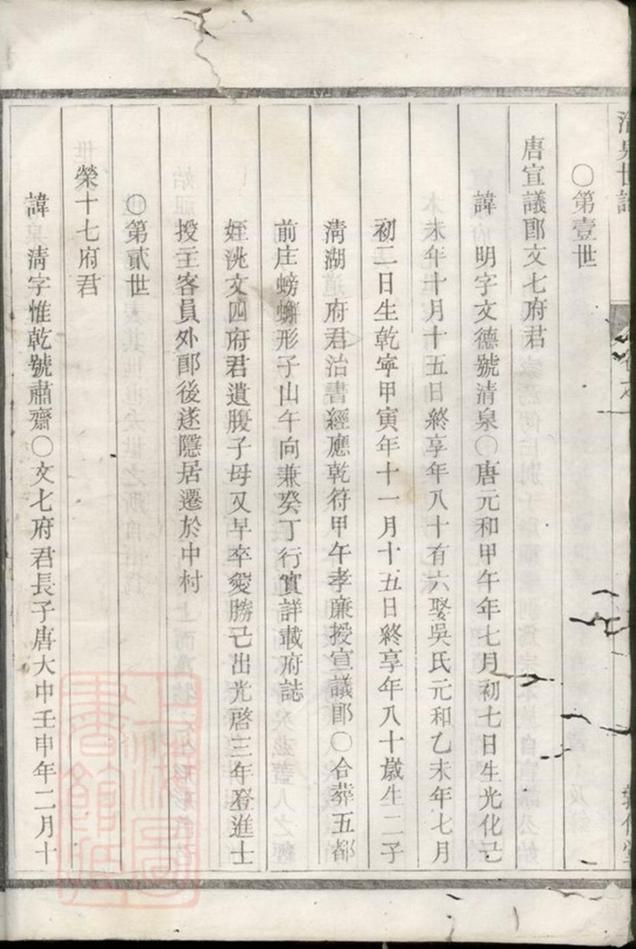 清泉世譜
○第壹世
唐宣議郎文七府君
諱 明字文德號清泉○唐元和甲午年七月初七日生光化己
未年十月十五日終享年八十有六娶吳氏元和乙未年七月
初二日生乾寧甲寅年十一月十五日終享年八十歲生二子
清湖 府君治書經應乾符甲午孝廉授宣議郎○合葬五都
前庄螃蠏形子山午向兼癸丁行實詳載府誌
姪洮文四府君遺腹子母又早卒愛勝己出光啓三年登進士
授主客員外郎後遂隱居遷於中村
○第貳世
榮十七府君
諱 淸字惟乾號肅齋○文七府君長子唐大中壬申年二月十